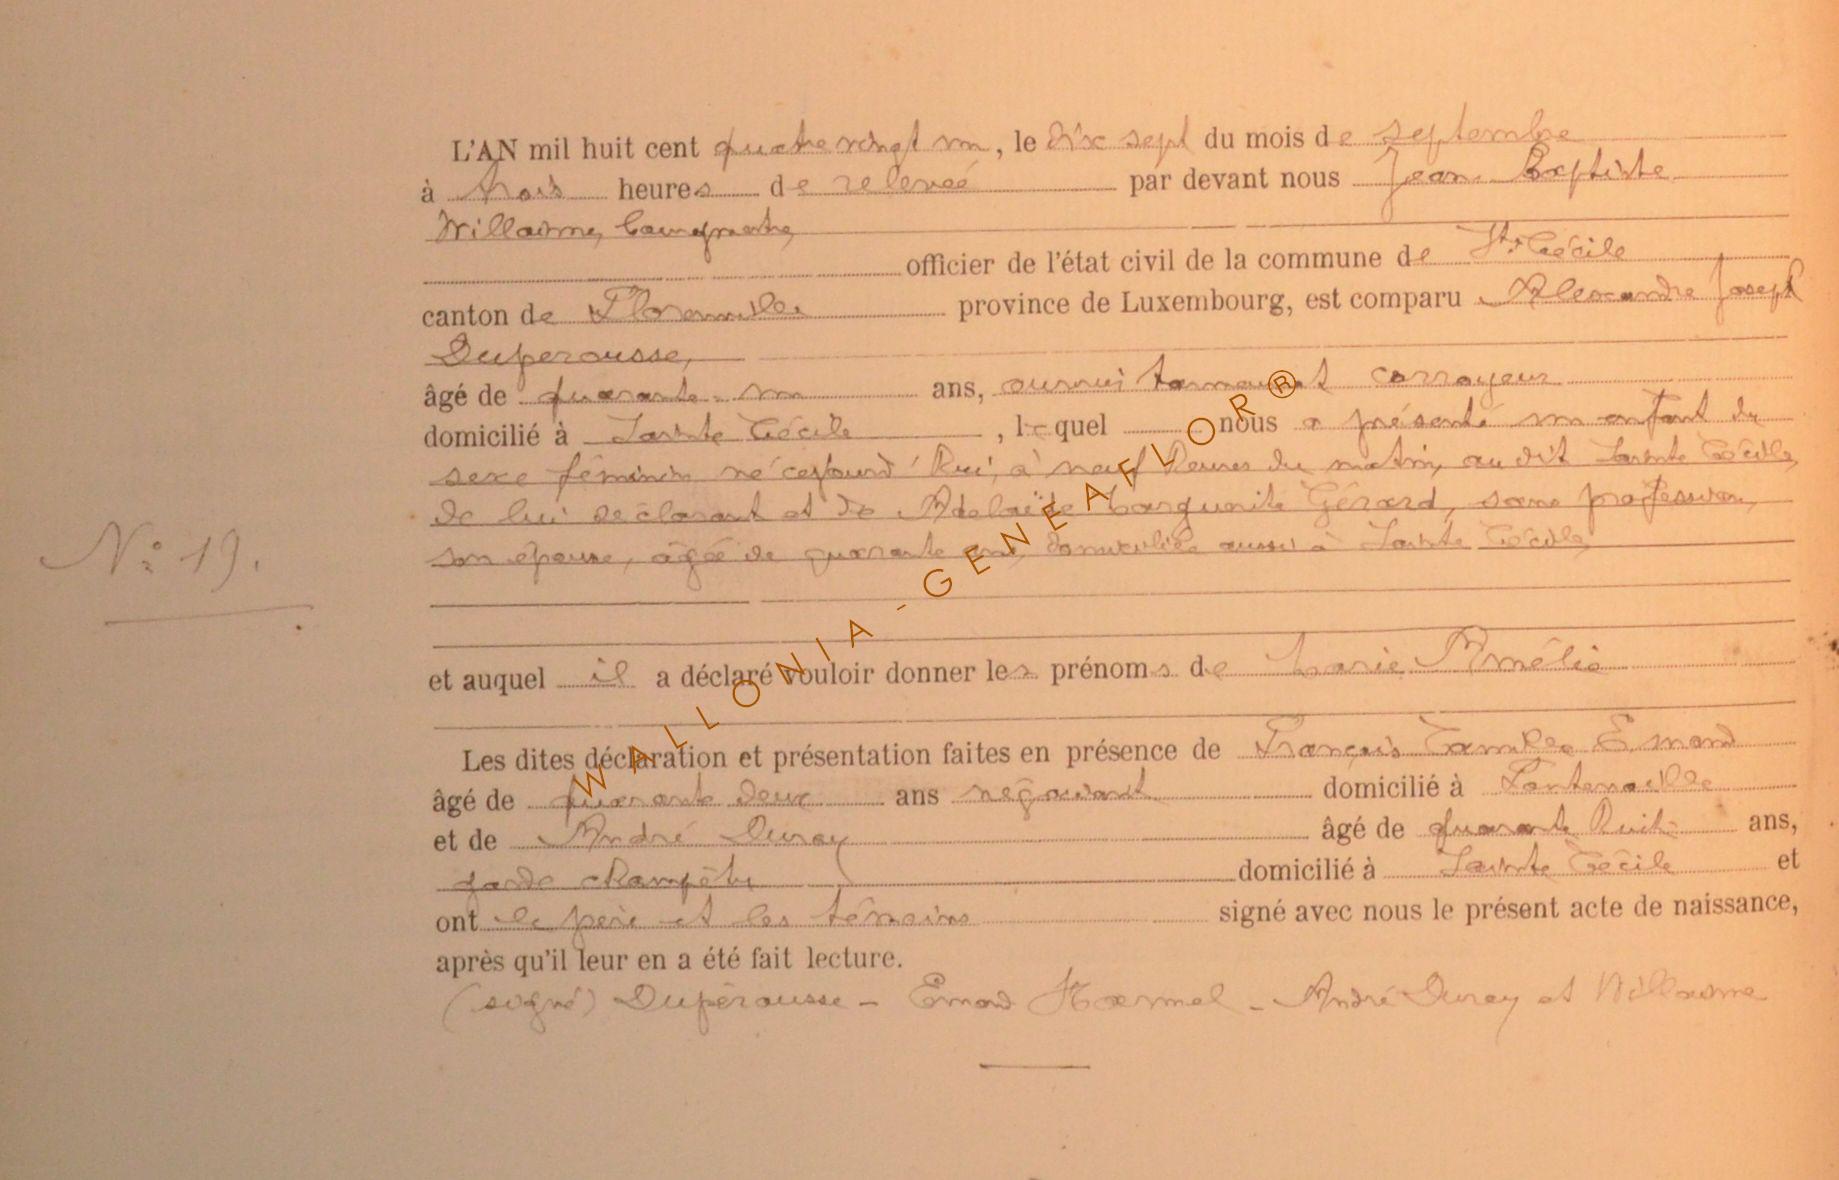 L'AN mil huit cent quatre vingt un, le dix sept du mois de septembre
à trois heures de relevée par devant nous Jean Baptiste
Willaime, Bourgmestre,
officier de l'état civil de la commune de Ste Cécile
canton de Florenville province de Luxembourg, est comparu Alexandre Joseph
Duperousse,
âgé de quarante un ans, corroyeur
domicilié à Sainte Cécile, lequel nous a présenté un enfant du
sexe féminin né cejourd'hui, à neuf heures du matin, au dit Sainte Cécile,
de lui déclarant et de Adelaïde Marguerite Gérard, sans profession,
son épouse, âgée de quarante ans, domiciliée aussi à Sainte Cécile,
N° 19.
et auquel il a déclaré vouloir donner les prénoms de Marie Amélie
Les dites déclaration et présentation faites en présence de François Camille Emond
âgé de quarante deux ans négociant domicilié à Fontenoille
et de André Duray âgé de quarante huit ans,
garde champêtre domicilié à Sainte Cécile et
ont le père et les témoins signé avec nous le présent acte de naissance,
après qu'il leur en a été fait lecture.
(signé) Dupérousse - Emond Harmel - André Duray et Willaime
WALLONIA-GENEAFLOR®